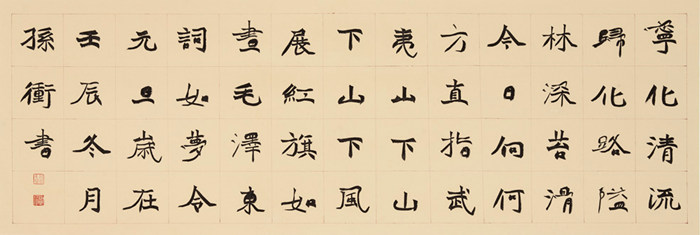 寧化清流
歸化路隘
林深苔滑
今日向何
方直指武
夷山下山
下山下風
展紅旗如
畫毛澤東
詞如夢令
元旦歲在
壬辰冬月
孫衝書